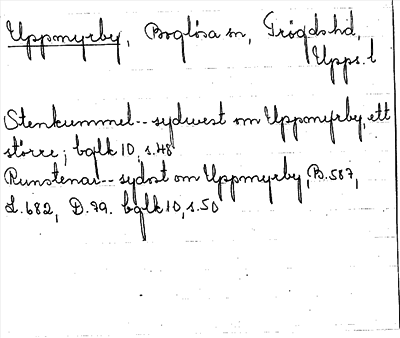 Uppmyrby, Boglösa sn, Trögds hd,
Upps. l
Stenkummel -- sydväst om Uppmyrby, ett
större; bglk 10, s. 48
Runstenar -- sydost om Uppmyrby, B. 587,
L. 682, D. 79. bglk 10, s. 50